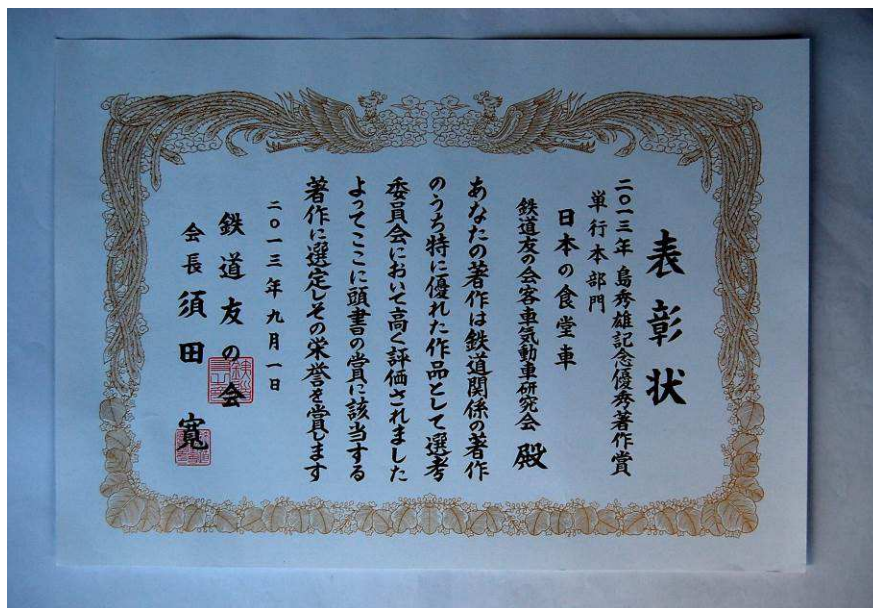 表彰状
二〇一三年 島秀雄記念優秀著作賞
単行本部門
日本の食堂車
鉄道友の会客車気動車研究会 殿
あなたの著作は鉄道関係の著作
のうち特に優れた作品として選考
委員会において高く評価されました
よってここに頭書の賞に該当する
著作に選定しその栄誉を賞します
二〇一三年九月一日
鉄道友の会
会長 須田 寬